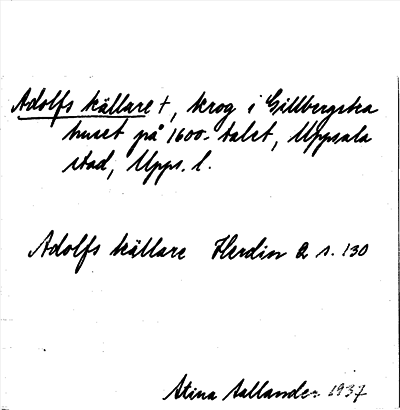 Adolfs källare †, krog i Gillbergska
huset på 1600-talet, Uppsala
stad, Upps. l.
Adolfs källare Herdin 2 s. 130
Stina Sallander 1937